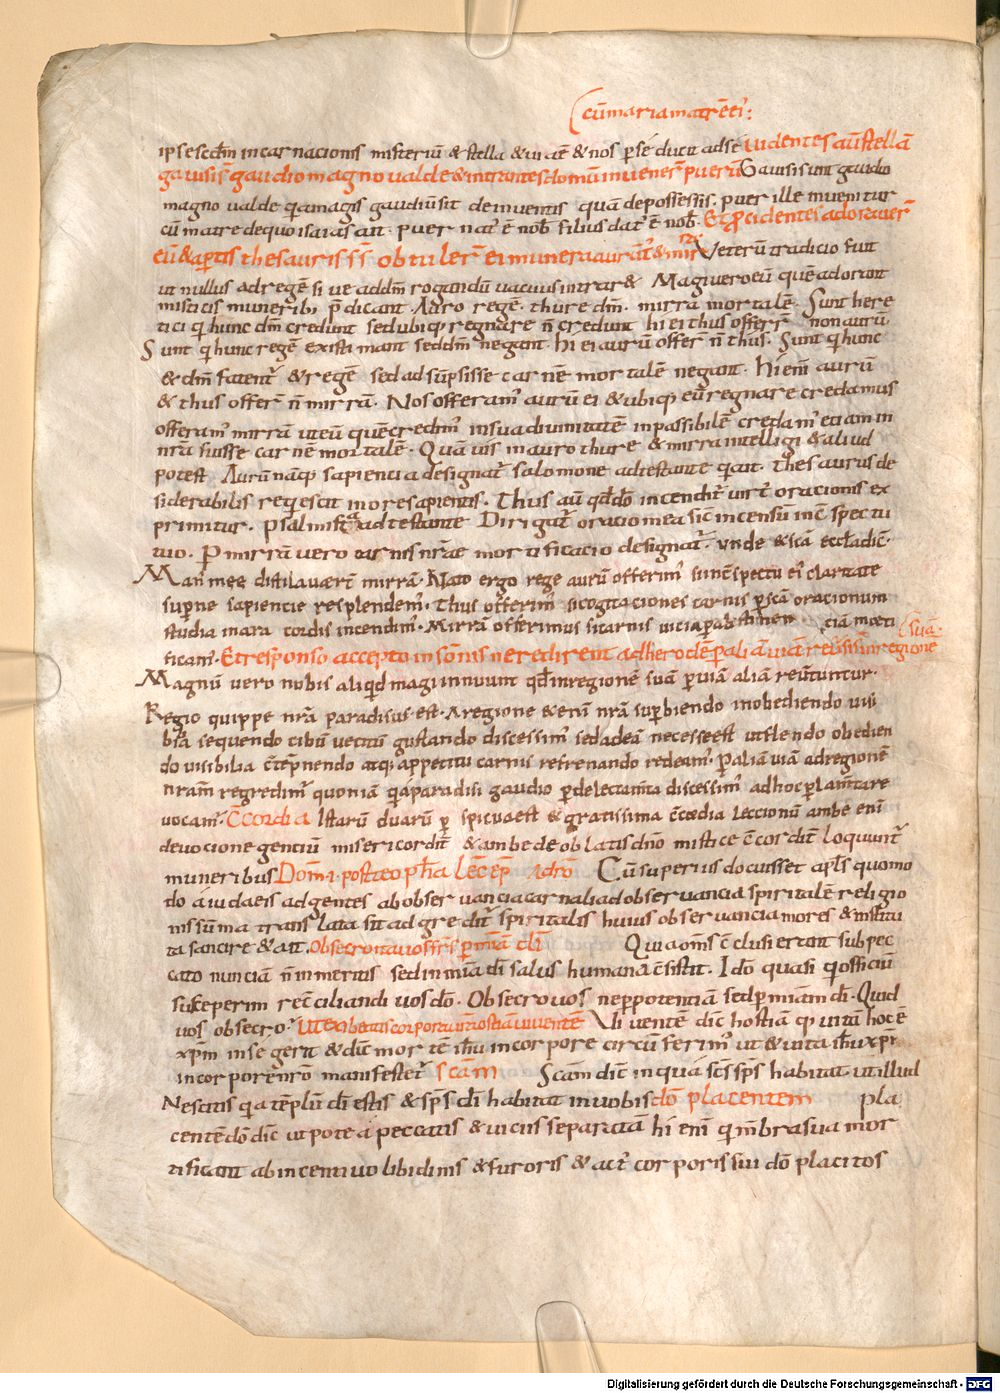 cū maria matrē ei᷒:
ipse scdm̄ incarnacionis misteriū & stella & uia ē & nos ꝑ se ducit ad se Uidentes aūt stellā
gauisi sī gaudio magno ualde & intrantes domū inuener̄ puerū Gauisi sunt gaudio
magno ualde q̄a magis gaudiū sit de inuentis quā de possessis. puer ille inuenitur
cū matre de quo isaias ait. puer nat᷒ ē nob̄ filius dat᷒ ē nob̄. Et ꝓcidentes adorauer̄
eū & aꝑtis thesauris sī obtuler̄ ei munera aurū t᷒ & mirrā Veterū tradicio fuit
ut nullus ad regē siue ad dm̄ rogandū uacuus intrar&. Magi uero eū quē adorant
misticis munerib; p̄dicant. Auro regē. thure dm̄. mirra mortalē. Sunt here
tici q̄ hunc dm̄ credunt sed ubiq; regnare n̄ credunt hi ei thus offer̄ non aurū.
Sunt q̄ hunc regē existimant sed dm̄ negant. hi ei aurū offer̄ n̄ thus. Sunt q̄ hunc
& dm̄ fatent᷒ & regē sed adsūpsisse carnē mortalē negant. hi eni᷒ aurū
& thus offer̄ n̄ mirrā. Nos offeram᷒ aurū ei & ubiq; eū regnare credamus
offeram᷒ mirrā ut eū quē credim᷒ in sua diuinitate inpassibilē credam᷒ etiam in
nr̄a fuisse carnē mortalē. Quāuis in auro thure & mirra intelligi & aliud
potest Aurū nāq; sapiencia designat᷒ salomone adtestante q̄ ait. thesaurus de
siderabilis req̄escit in ore sapientis. Thus aū qd̄ dō incendit᷒ uirt᷒ oracionis ex
primitur. psalmista adtestante Dirigat᷒ oracio mea sic̄ incensū in c̄spectu
tuo. Ꝑ mirrā uero carnis nr̄ae mortificacio designat᷒. unde & scā eccla dic̄.
Man᷒ mee distilauer̄t mirrā. Nato ergo rege aurū offerim᷒ si in c̄spectu ei᷒ claritate
superne sapiencie resplendem᷒. thus offerim᷒ si cogitaciones carnis ꝑ scā oracionum
studia in ara cordis incendim᷒. Mirrā offerimus si carnis uicia ꝑ abstinen ciā morti
ficam᷒. Et responso accepto in sōnis ne redirent ad herodē ꝑ aliā uiā reu᷒si sī in regionē suā.
Magnū uero nobis aliqid magi innuunt qd̄ in regionē suā ꝑ uiā aliā reu᷒tuntur.
Regio quippe nr̄a paradisus est. A regione &enī nr̄a suꝑbiendo inobediendo uisi
bilia sequendo cibū uetitū gustando discessim᷒ sed ad eā necesse est ut flendo obedien
do uisibilia c̄tēpnendo atq; appetitū carnis refrenando redeam᷒. ꝑ aliā uiā ad regionē
nram̄ regredim᷒ quoniā q̄ a paradisi gaudio ꝑ delectamta discessim᷒ ad hoc ꝑ lamtare
uocam᷒. C̄cordia Istarū duarū ꝑspicua est & gratissima c̄cordia leccionū ambe eni᷒
deuocione genciū misericordit᷒ & ambe de oblatis dn̄o mistice c̄cordit᷒ loquunt᷒
muneribus Dom̄. i. post teophā lec̄ ep̄ ad ro Cū superius docuisset apl̄s quomo
do a iudaeis ad gentes ab obseruancia carnali ad obseruancia spiritalē religio
nis sūma translata sit adgredit᷒ spiritalis huius obseruancia mores & institu
ta sancire & ait. Obsecro itaq; uos frs̄ ꝑ miā di Quia oms̄ c̄clusi erant sub pec
cato nunciā n̄ in meritis sed in miā di᷒ salus humana c̄sistit. Ido᷒ quasi q̄ officiū
susceperim rec̄ciliandi uos dō. Obsecro uos ne ꝑ potentiā sed ꝑ miam di᷒. Quid
uos obsecro? Ut exhibeatis corpora ur̄a hostiā uiuentē Viuentē dic̄ hostiā q̄ uitā hoc ē
xp̄m in se gerit & dū mortē ihū in corpore circūferim᷒ ut & uita ihū xp̄i
in corpore nr̄o manifestet᷒ scām Scām dic̄ in qua sc̄s sp̄s habitat. ut illud
Nescitis q̄a tēplū di᷒ estis & sp̄s di᷒ habitat in uobis dō placentem pla
centē dō dic̄ utpote a peccatis & uiciis separatā hi eni᷒ q̄ mēbra sua mor
tificant ab incentiuo libidinis & furoris & act᷒ corporis sui dō placitos
Digitalisierung gefördert durch die Deutsche Forschungsgemeinschaft - DFG